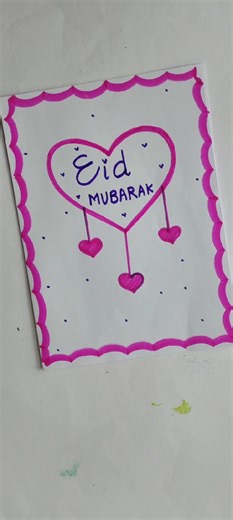 Eid
MUBARAK